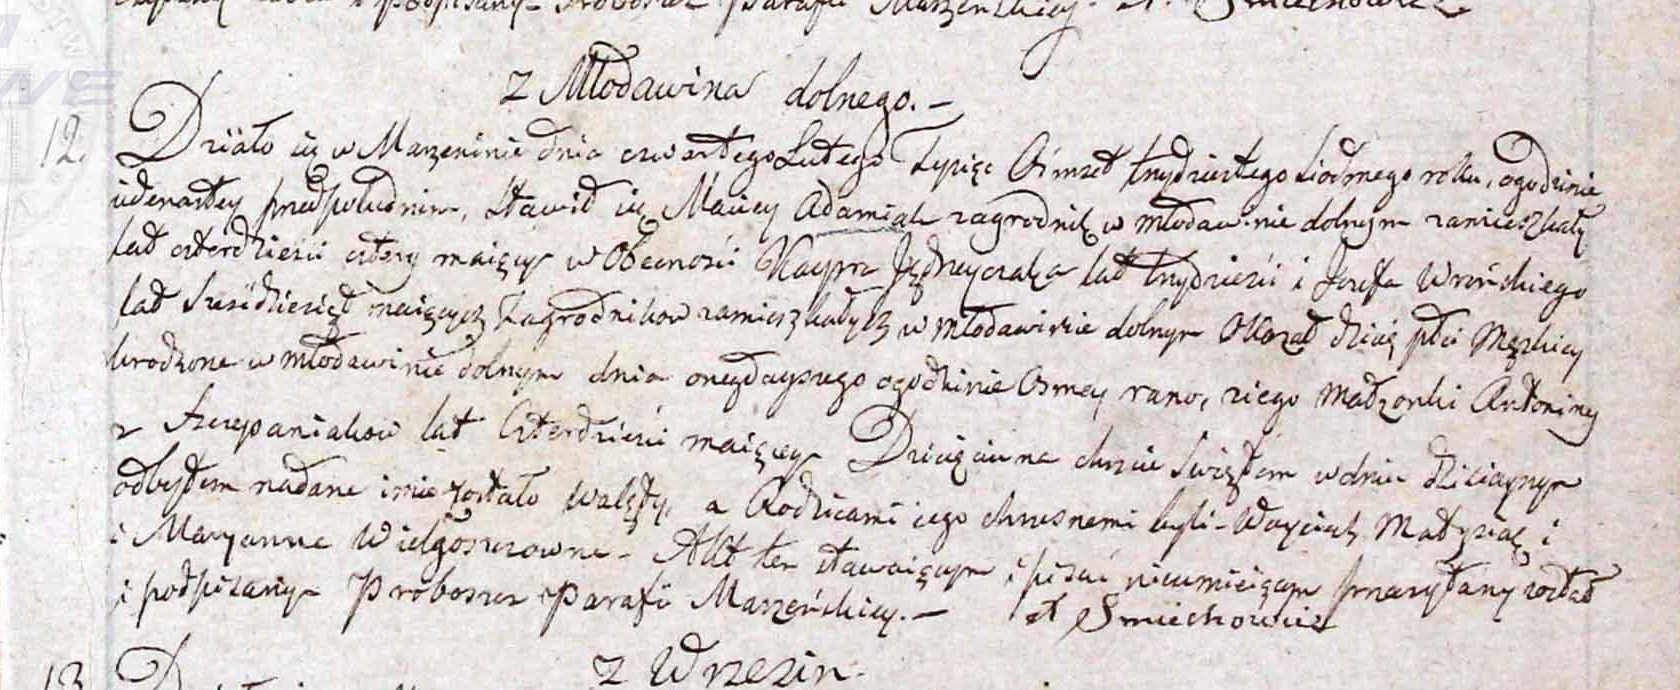 podpisany Proboszcz Parafii Marzeńskiey. A. Smiechowicz
Z Młodawina dolnego. –
12.
Działo się w Marzeninie dnia czwartego Lutego Tysiąc Ośmset trzydziestego Siodmego roku, o godzinie
iedenastey przedpołudniem, Stawił się Maciey Adamiak zagrodnik w Młodawinie dolnym zamieszkały
lat czterdzieści cztery maiący w Obecności Kacpra Jędrzeyczaka lat trzydzieści i Jozefa Wrońskiego
lat Sześćdziesiąt maiących Zagrodnikow zamieszkałych w Młodawinie dolnym Okazał dziecię płci Męzkiey
urodzone w Młodawinie dolnym dnia onegdayszego o godzinie Osmey rano, z iego Małzonki Antoniny
z Szczepaniakow lat Czterdzieści maiącey Dziecięciu na chrzcie Swiętem w dniu dzisieyszym
odbytem nadane imie zostało Walęty, a Rodzicami iego chrzesnemi byli – Woyciech Matysiak i
i Maryanna Wielgoszowna – Akt ten stawaiącym i pisać nieumieiącym przeczytany został
i podpisany Proboszcz Parafii Marzeńskiey. – A Smiechowicz
Z Wrzezin
13